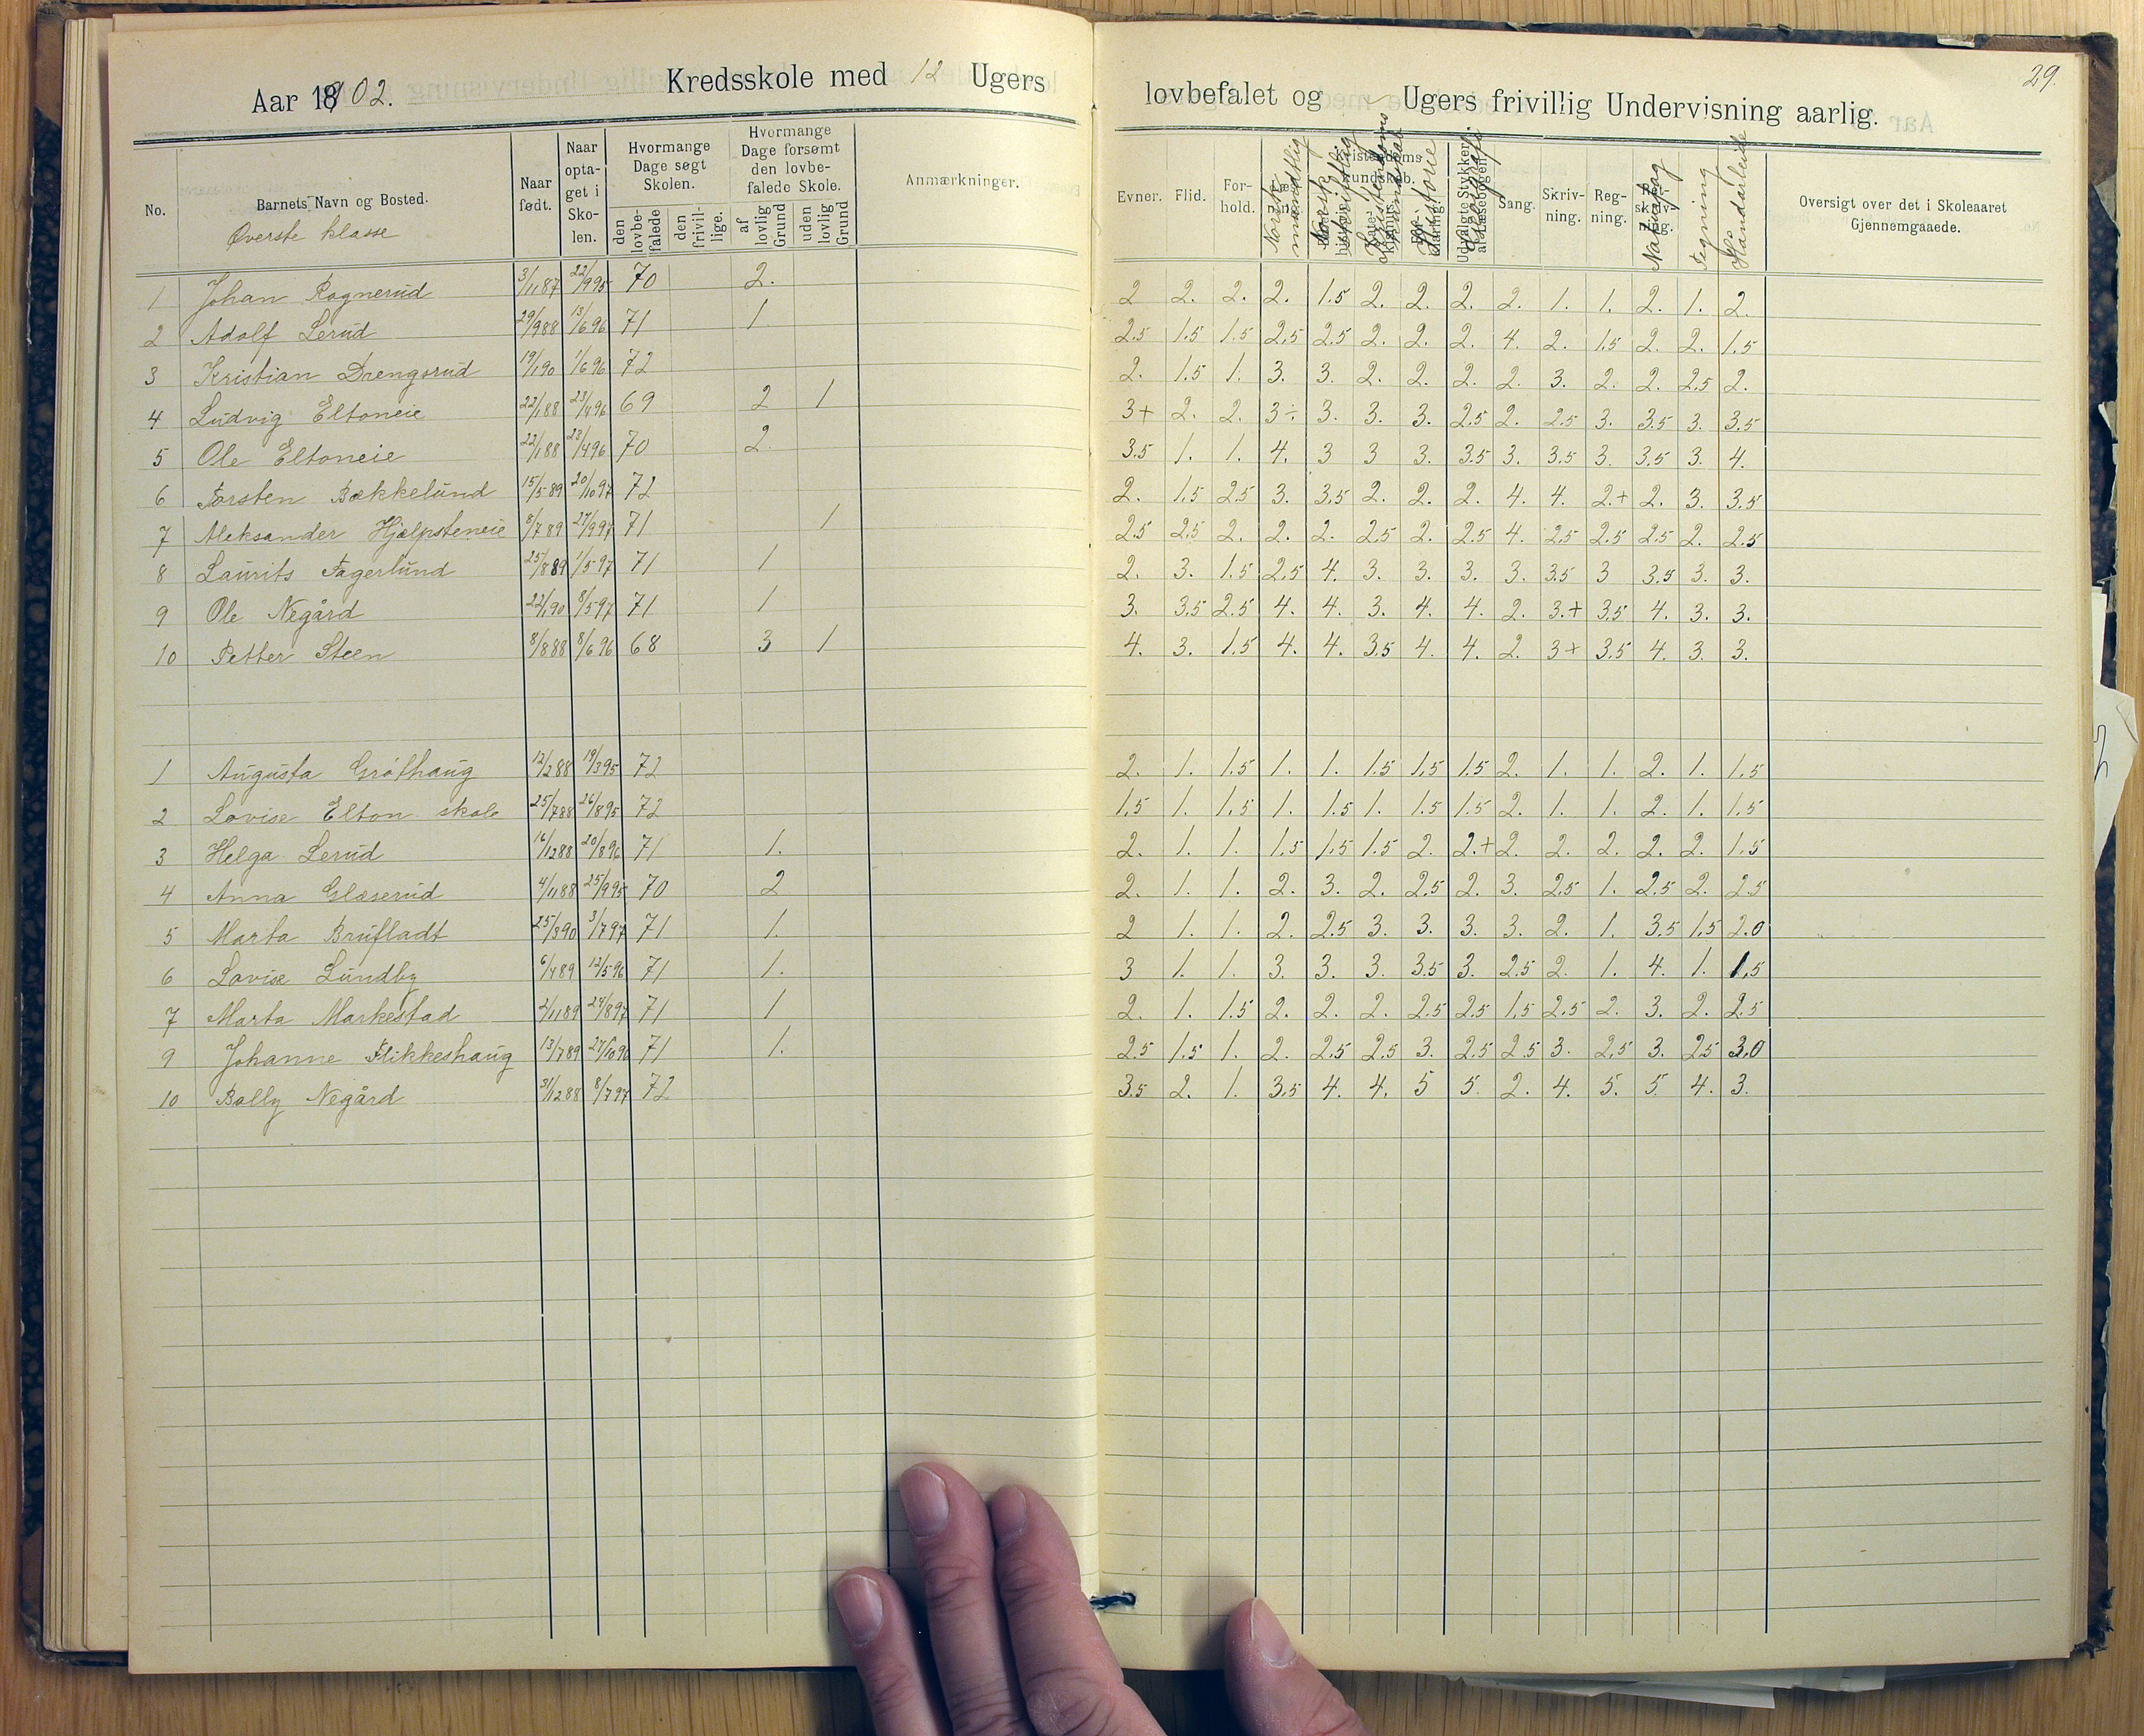 Aar 1902. Kredsskole med 12 Ugers lovbefalet og Ugers frivillig Undervisning aarlig. 29.
No. Barnets Navn og Bosted. Naar født. Naar optaget i Skolen. Hvormange Dage søgt Skolen. den lovbefalede den frivillige. Hvormange Dage forsømt den lovbefalede Skole. af lovlig Grund uden lovlig Grund Anmærkninger. Evner. Flid. Forhold. Norsk mundtlig Norsk skriftlig Kristendoms kundskab Historie Geografi Sang. Skrivning. Regning. Naturfag Tegning Haandarbeide Oversigt over det i Skoleaaret Gjennemgaaede.
Øverste klasse
1 Johan Rognerud 3/11 87 22/9 95 70 2. 2 2. 2. 2. 1.5 2. 2. 2. 2. 1. 1. 2. 1. 2.
2 Adolf Lerud 29/9 88 13/6 96 71 1 2.5 1.5 1.5 2.5 2.5 2. 2. 2. 4. 2. 1.5 2. 2. 1.5
3 Kristian Drengsrud 19/1 90 1/6 96 72 2. 1.5 1. 3. 3. 2. 2. 2. 2. 3. 2. 2. 2.5 2.
4 Ludvig Eltoneie 22/1 88 23/4 96 69 2 1 3+ 2. 2. 3÷ 3. 3. 3. 2.5 2. 2.5 3. 3.5 3. 3.5
5 Ole Eltoneie 22/1 88 23/4 96 70 2 3.5 1. 1. 4. 3 3 3. 3.5 3. 3.5 3. 3.5 3. 4.
6 Torsten Bækkelund 15/5 89 20/10 97 72 2. 1.5 2.5 3. 3.5 2. 2. 2. 4. 4. 2+ 2. 3. 3.5
7 Aleksander Hjælpsteneie 8/7 89 27/9 97 71 1 2.5 2.5 2. 2. 2. 2.5 2. 2.5 4. 2.5 2.5 2.5 2. 2.5
8 Laurits Fagerlund 25/8 89 1/5 97 71 1 2. 3. 1.5 2.5 4. 3. 3. 3. 3. 3.5 3 3.5 3. 3.
9 Ole Negård 22/1 90 8/5 97 71 1 3. 3.5 2.5 4. 4. 3. 4. 4. 2. 3.+ 3.5 4. 3. 3.
10 Petter Steen 8/8 88 8/6 96 68 3 1 4. 3. 1.5 4. 4. 3.5 4. 4. 2. 3+ 3.5 4. 3. 3.
1 Augusta Gröthaug 12/2 88 19/3 95 72 2. 1. 1.5 1. 1. 1.5 1.5 1.5 2. 1. 1. 2. 1. 1.5
2 Lovise Elton skole 25/7 88 26/8 95 72 1.5 1. 1.5 1. 1.5 1. 1.5 1.5 2. 1. 1. 2. 1. 1.5
3 Helga Lerud 16/12 88 20/8 96 71 1. 2. 1. 1. 1.5 1.5 1.5 2. 2.+ 2. 2. 2. 2. 2. 1.5
4 Anna Glæserud 4/11 88 25/9 95 70 2 2. 1. 1. 2. 3. 2. 2.5 2. 3. 2.5 1. 2.5 2. 2.5
5 Marta Brufladt 25/3 90 3/7 97 71 1. 2 1. 1. 2. 2.5 3. 3. 3. 3. 2. 1. 3.5 1.5 2.0
6 Lovise Lundby 6/4 89 12/5 96 71 1. 3 1. 1. 3. 3. 3. 3.5 3. 2.5 2. 1. 4. 1. 1.5
7 Marta Markestad 2/11 89 24/8 97 71 1 2. 1. 1.5 2. 2. 2. 2.5 2.5 1.5 2.5 2. 3. 2. 2.5
9 Johanne Flikkeshaug 13/7 89 27/10 96 71 1. 2.5 1.5 1. 2. 2.5 2.5 3. 2.5 2.5 3. 2.5 3. 2.5 3.0
10 Bolly Negård 31/12 88 8/7 97 72 3.5 2. 1. 3.5 4. 4. 5 5. 2. 4. 5. 5. 4. 3.